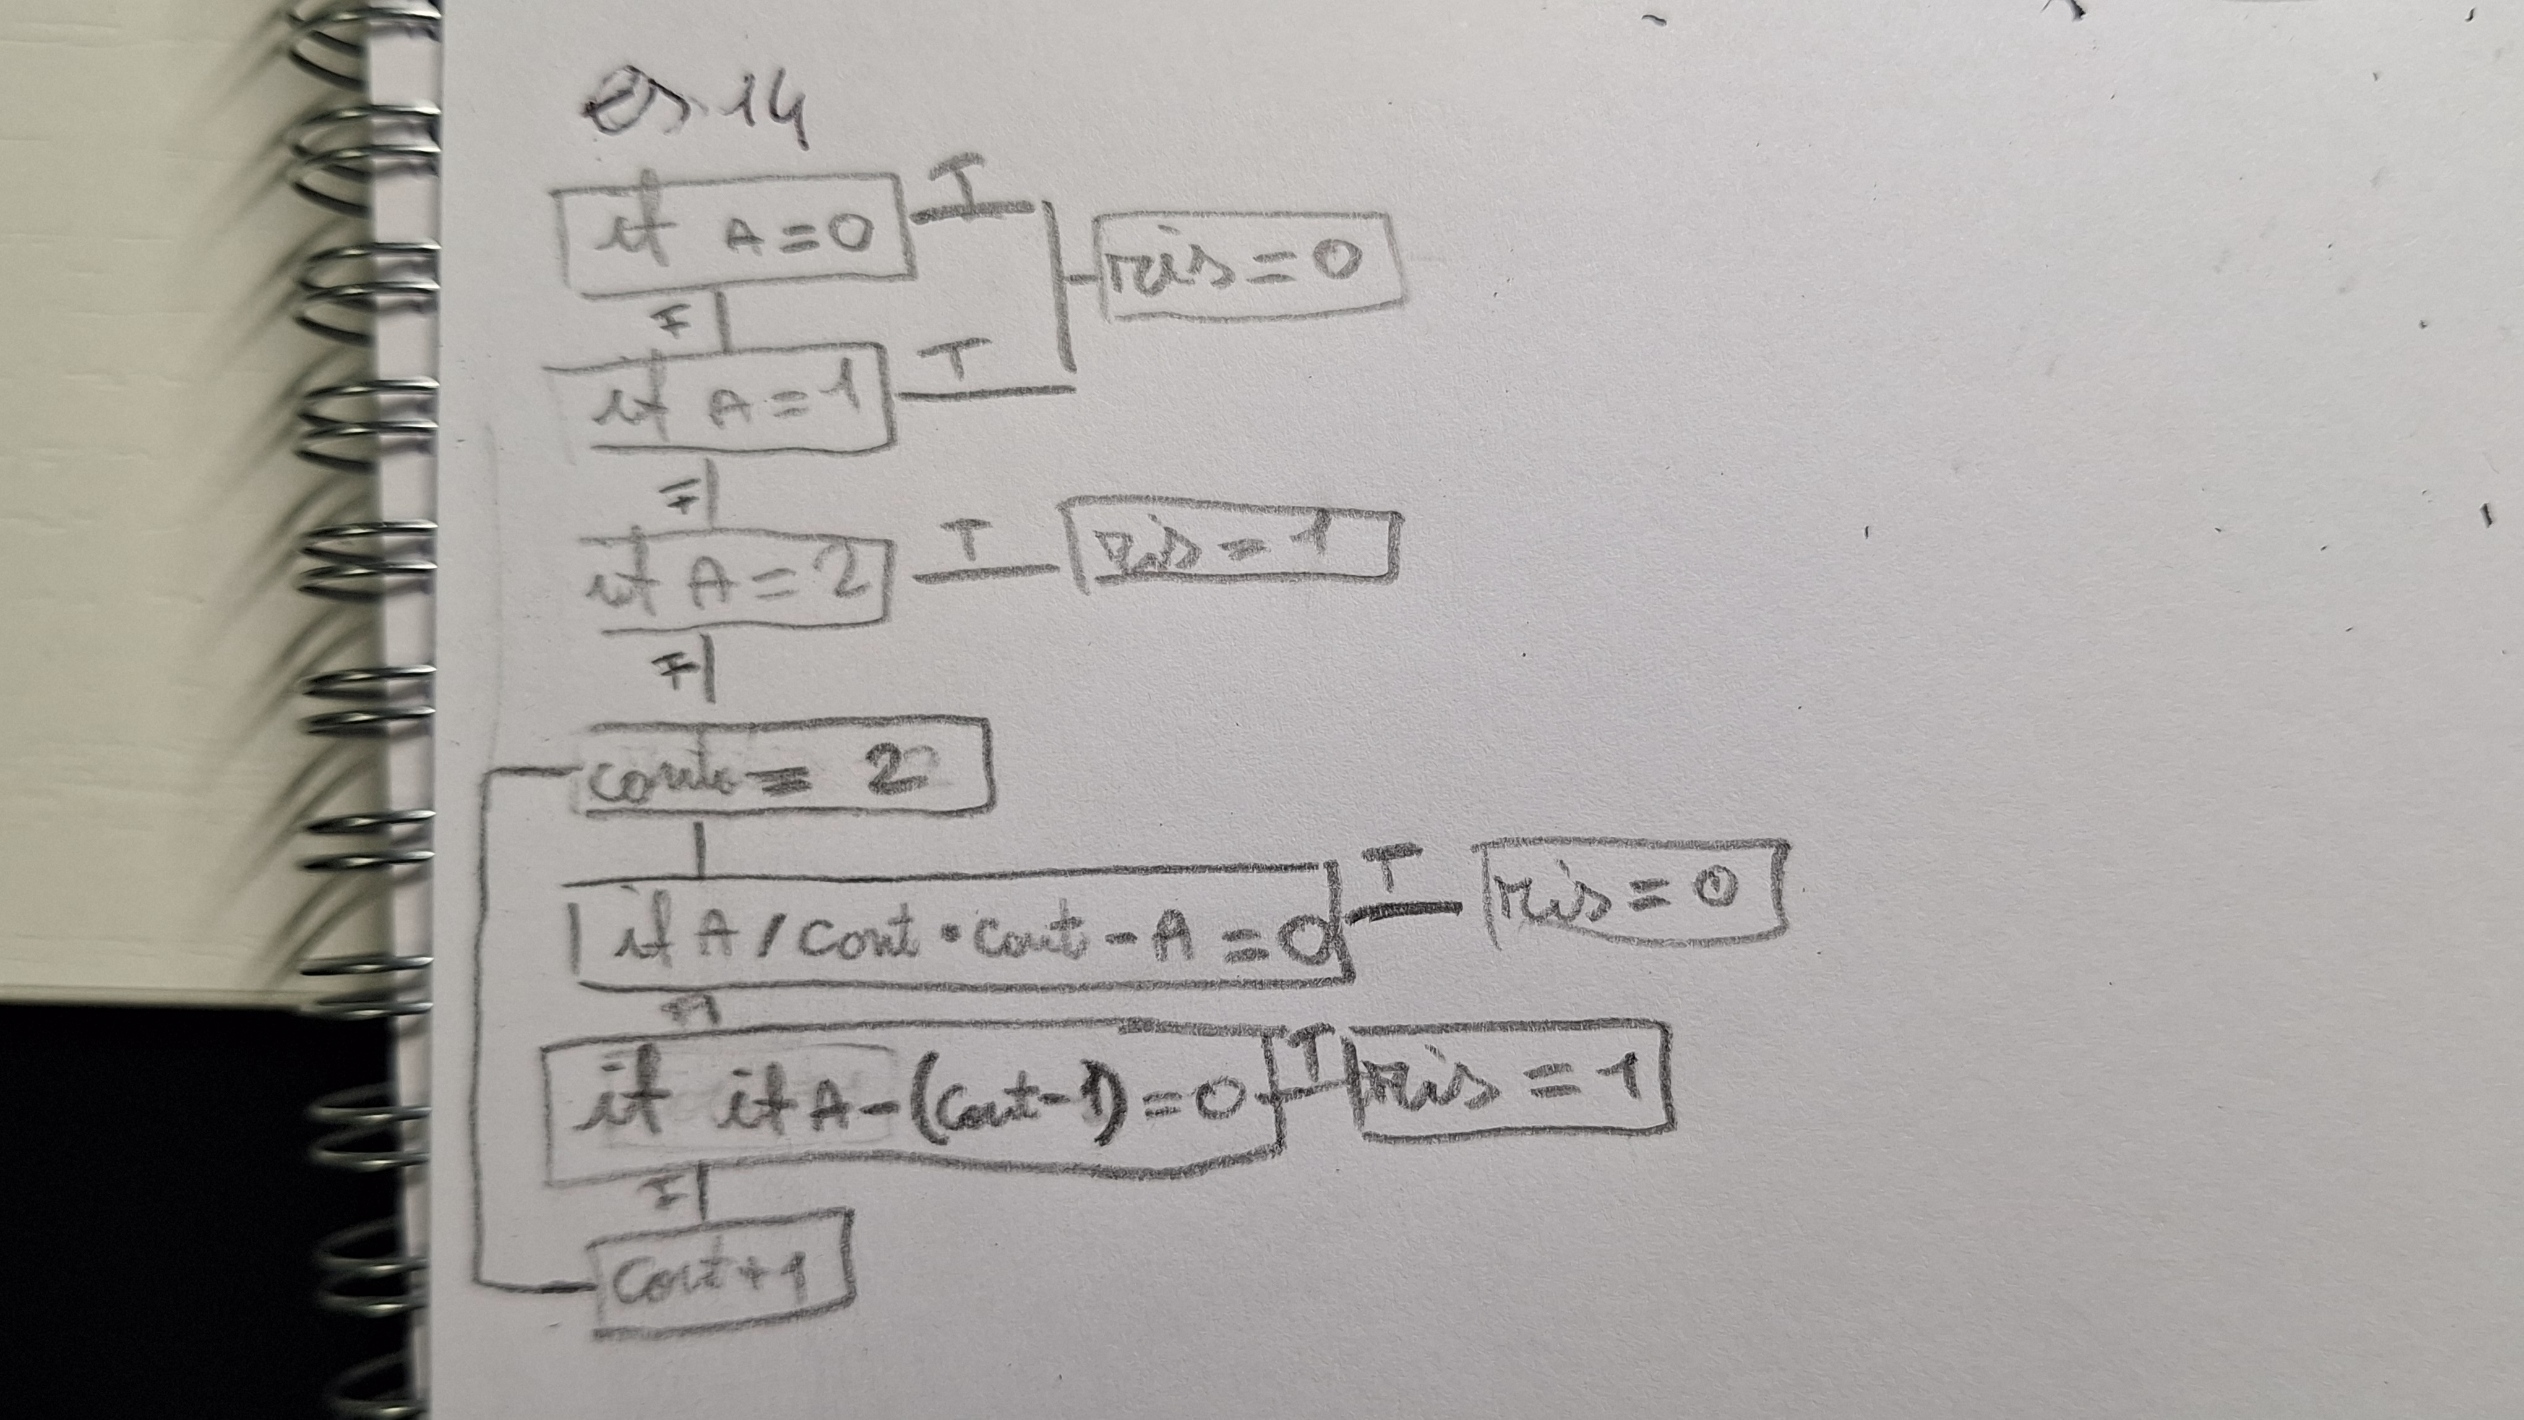 es 14
if A=0 T
ris=0
F
if A=1 T
F
if A=2 T ris=1
F
cont= 2
if A/cont•cont-A=0 T ris=0
F
if if A-(cont-1)=0 T ris=1
F
cont+1